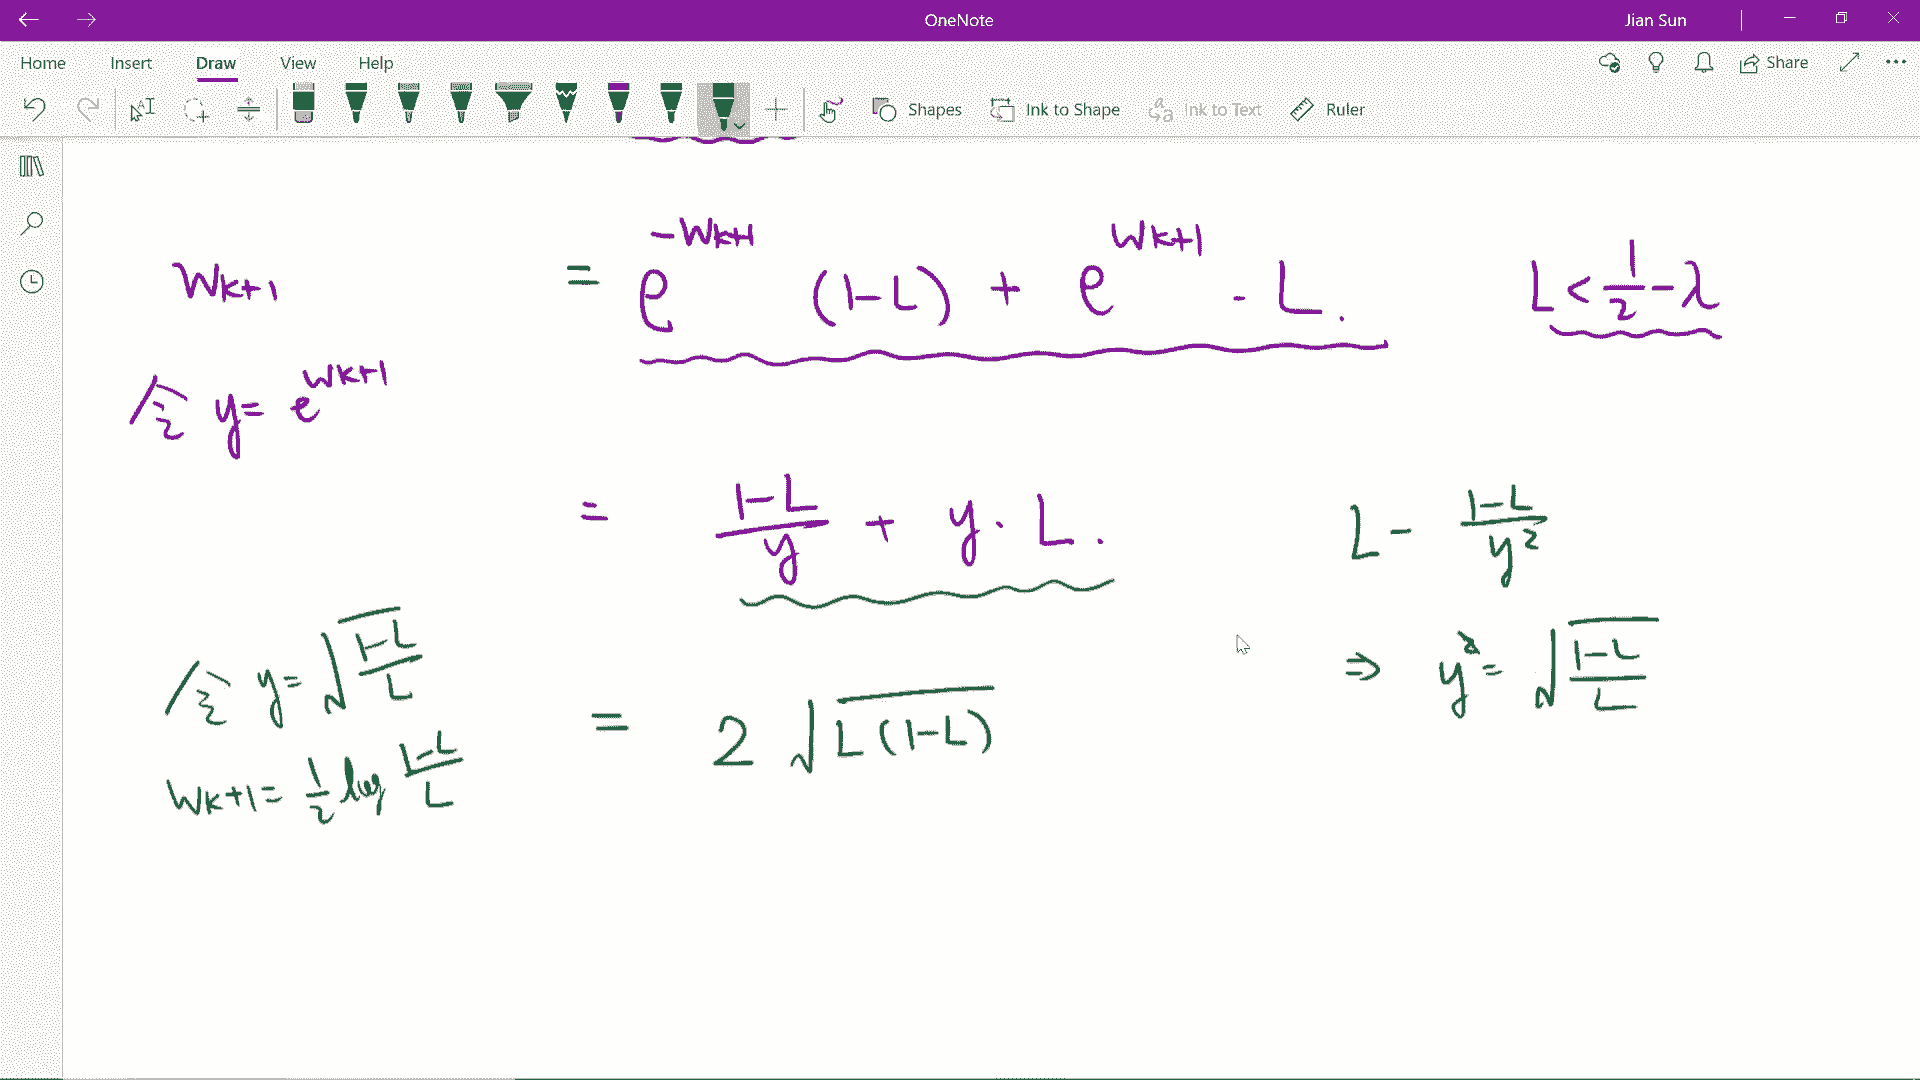 OneNote
Jian Sun
Home Insert Draw View Help
Share
Shapes Ink to Shape Ink to Text Ruler
W_{k+1} = e^{-W_{k+1}} (1-L) + e^{W_{k+1}} · L. L < \frac{1}{2} - λ
令 y = e^{W_{k+1}}
= \frac{1-L}{y} + y · L. L - \frac{1-L}{y^2}
令 y = \sqrt{\frac{1-L}{L}}
⇒ y = \sqrt{\frac{1-L}{L}}
= 2 \sqrt{L(1-L)}
W_{k+1} = \frac{1}{2} log \frac{1-L}{L}